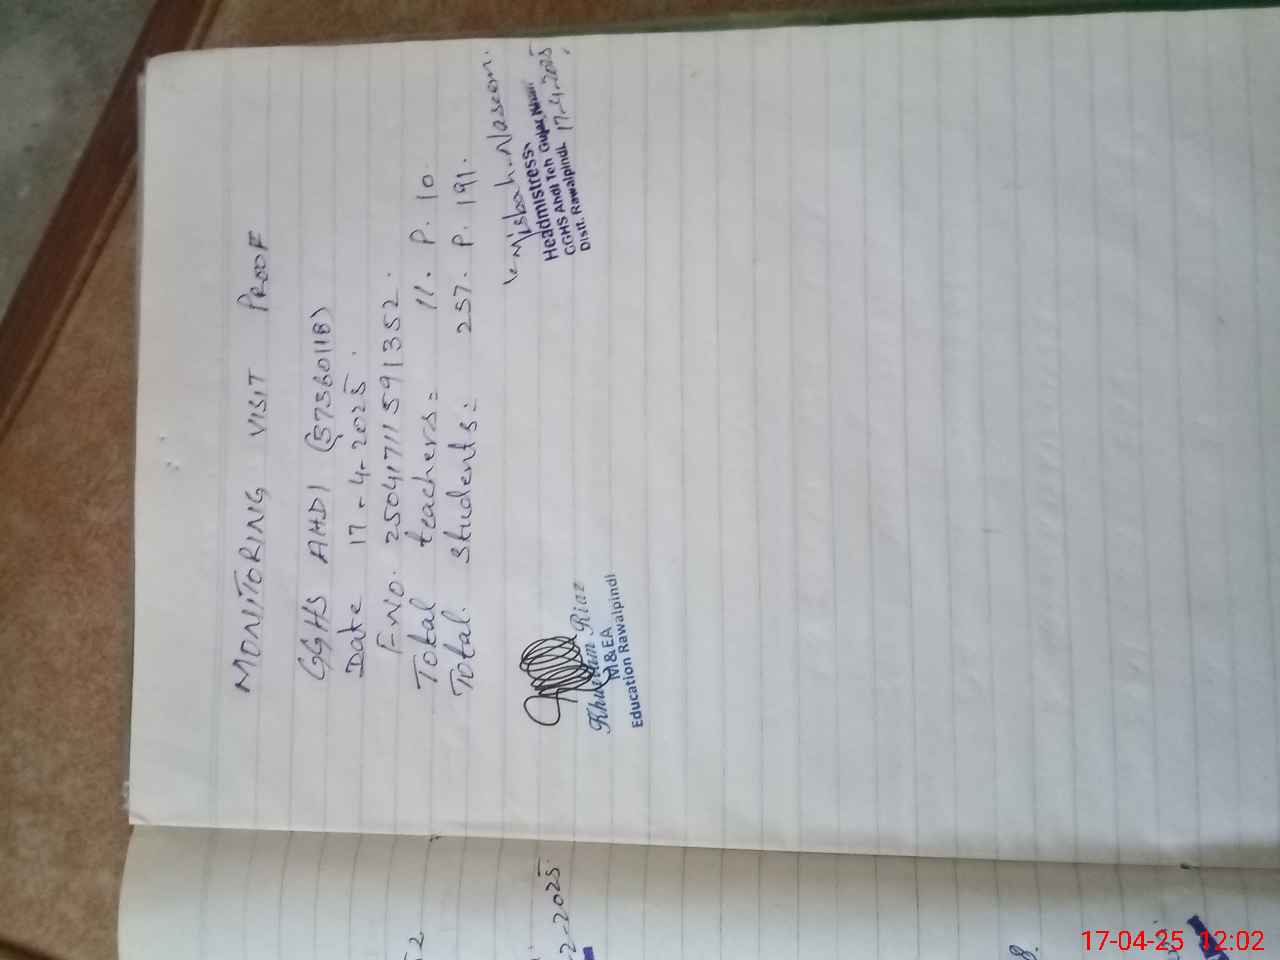 MONITORING VISIT PROOF
GGHS AHDI (37360118)
Date 17-4-2025.
F.NO. 25041711591352.
Total teachers= 11. P. 10.
Total. Students= 257. P. 191.
Misbah. Naseem.
Headmistress
GGHS Ahdi Teh Gujar Khan
Distt. Rawalpindi.
17-4-2025
Khurram Riaz
M & EA
Education Rawalpindi
2-2025.
17-04-25 12:02